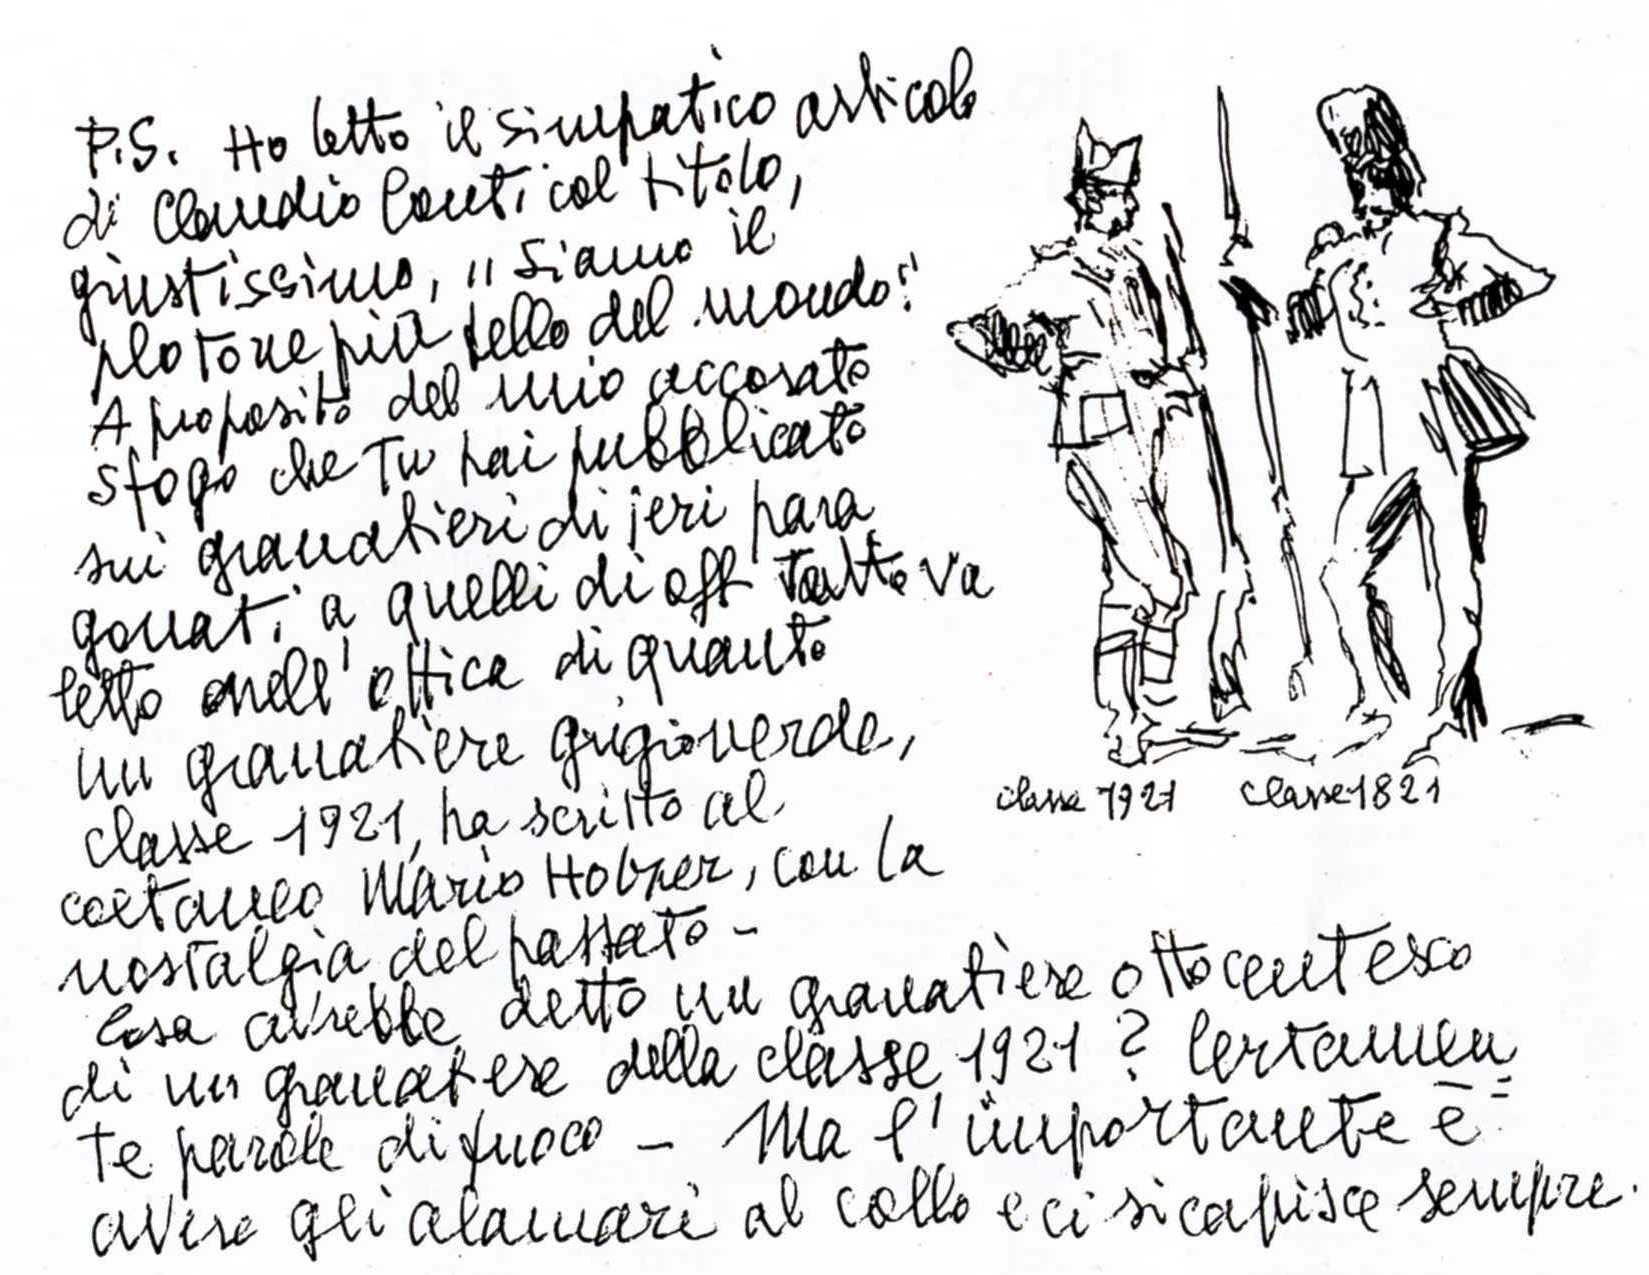 P.S. Ho letto il simpatico articolo
di Claudio Conti col titolo,
giustissimo, "Siamo il
plotone più bello del mondo!"
A proposito del mio accorato
sfogo che Tu hai pubblicato
sui granatieri di jeri para
gonati a quelli di oggi tutto va
letto nell'ottica di quanto
un granatiere grigioverde,
classe 1921, ha scritto al
coetaneo Mario Holzer, con la
nostalgia del passato -
Cosa avrebbe detto un granatiere ottocentesco
di un granatiere della classe 1921? Certamen
te parole di fuoco - Ma l'importante è
avere gli alamari al collo e ci si capisce sempre.
classe 1921
classe 1821